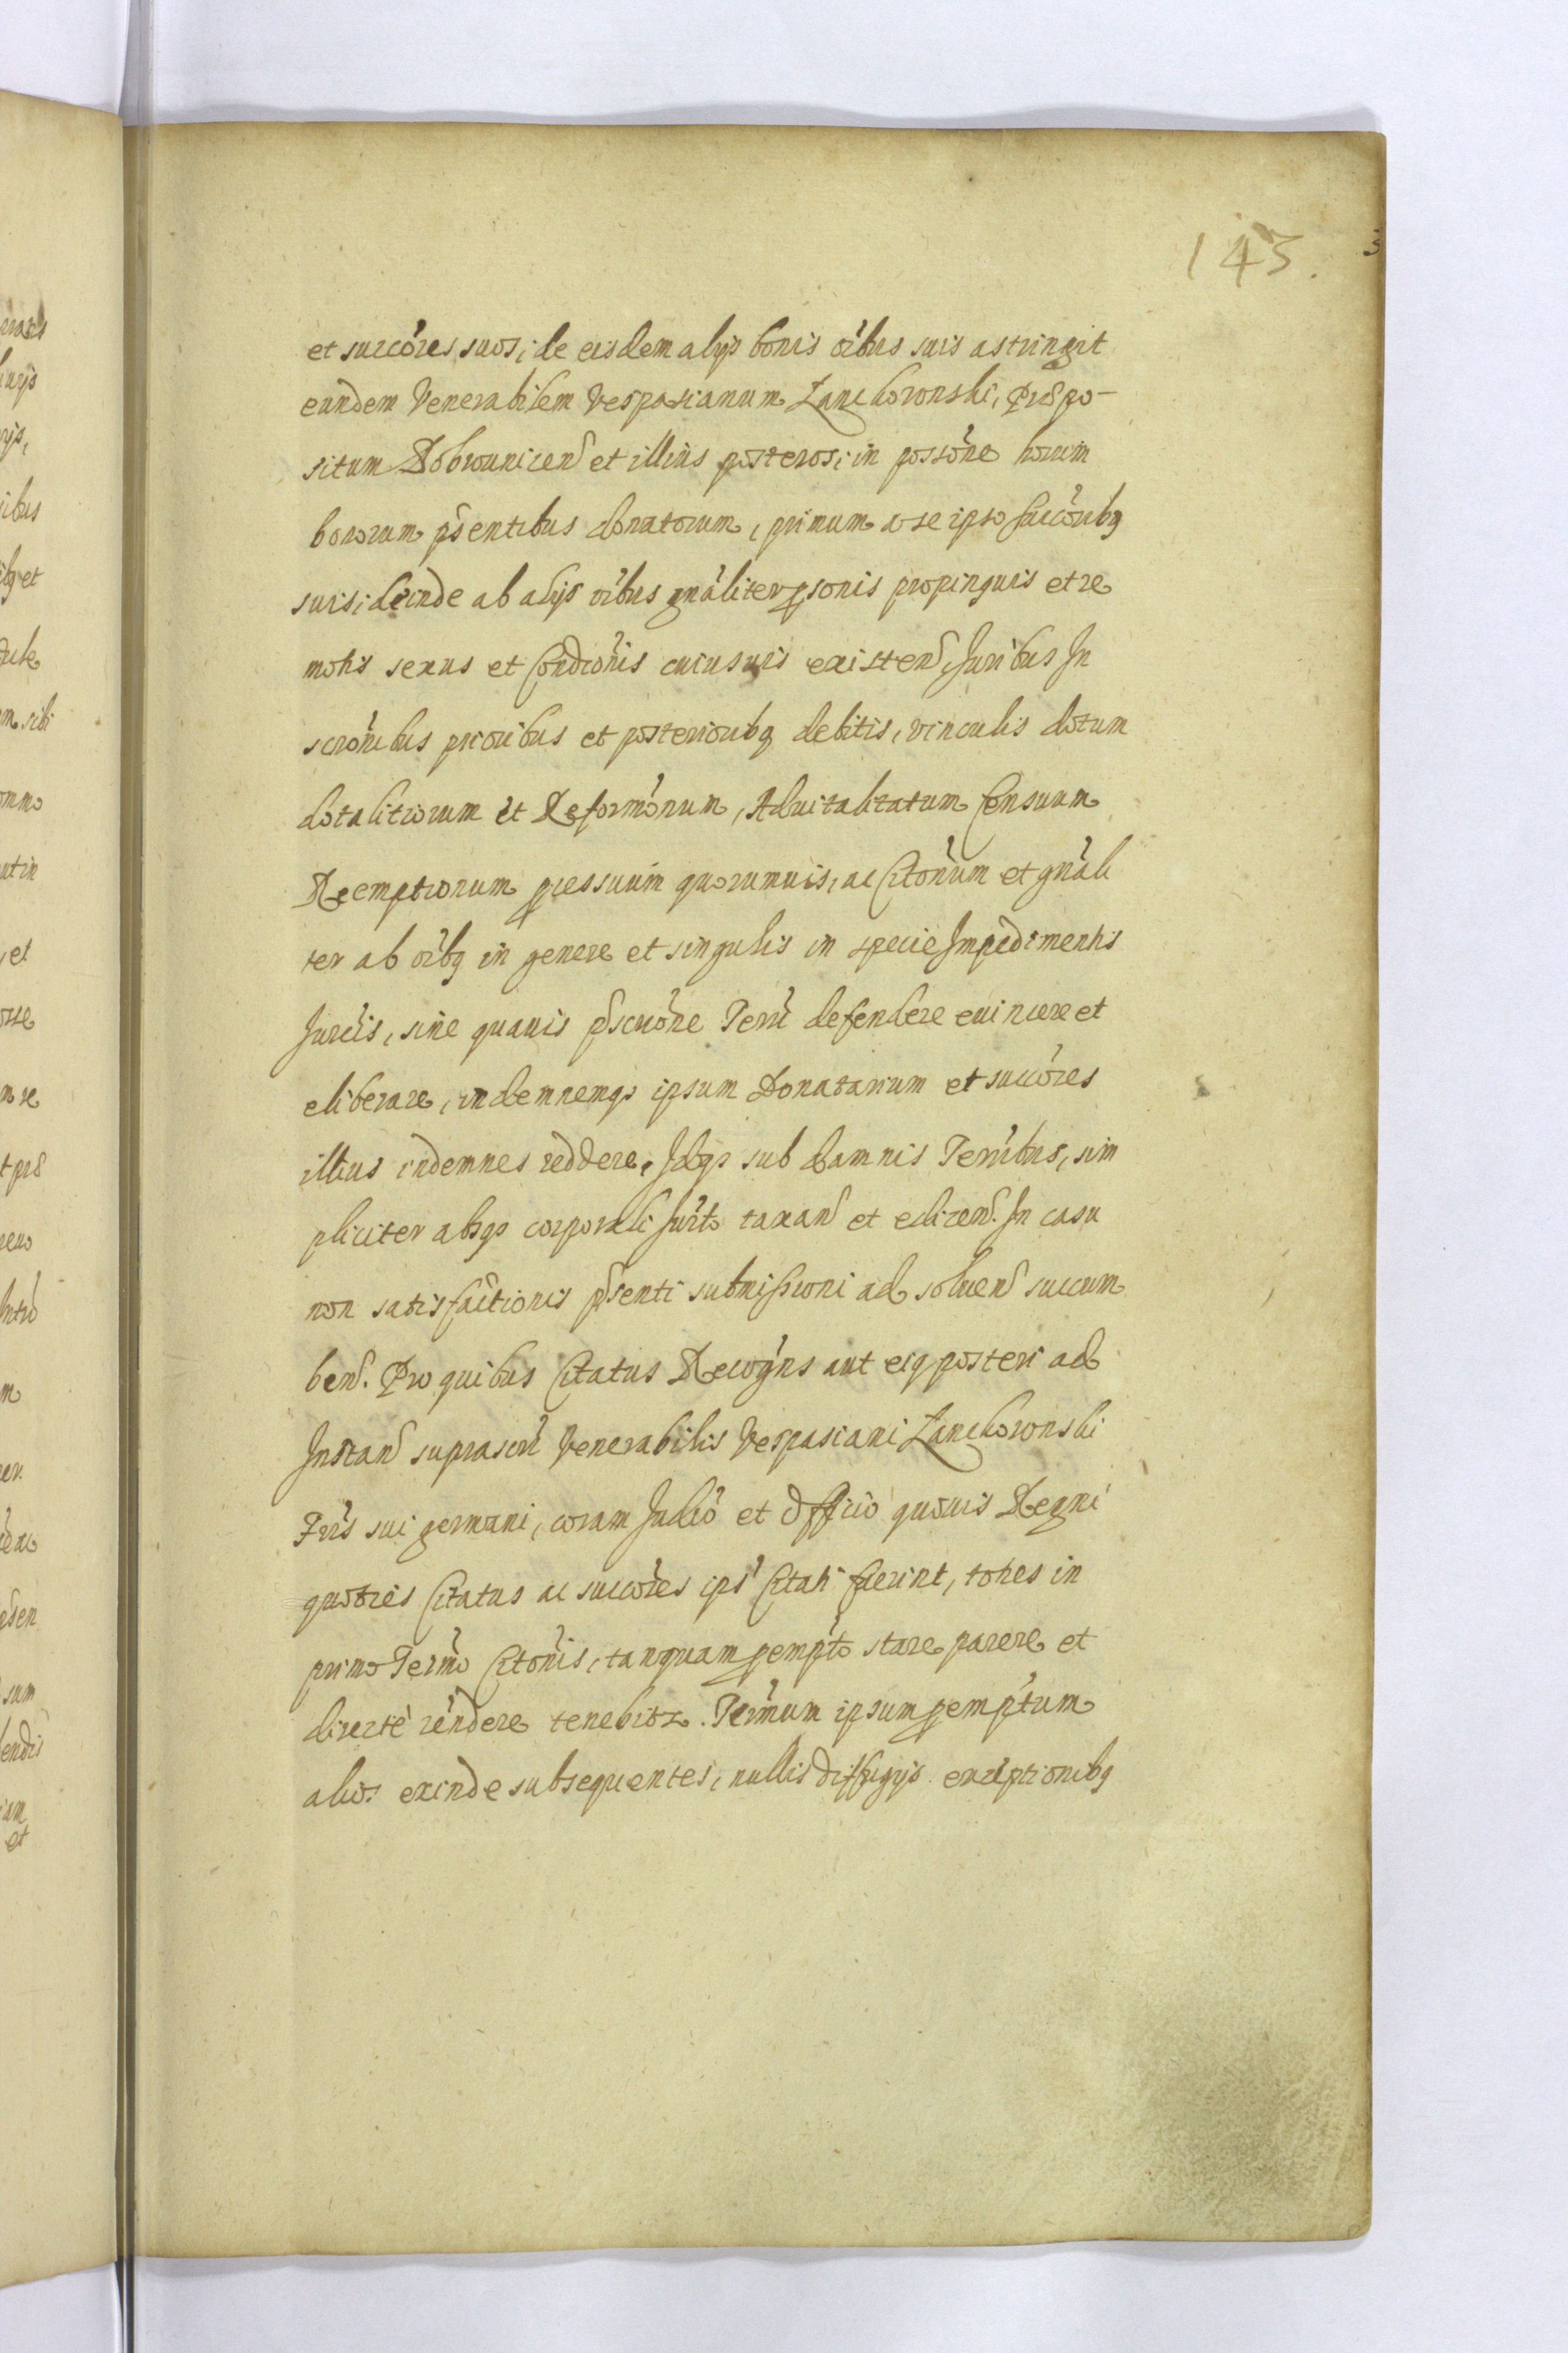 143.
et succores suos, de eisdem alijs bonis oibus suis astringit
eundem Venerabilem Vespasianum Lanckoronski, Præpo-
situm Dobrouicen et illius posteros, in possone horum
bonorum psentibus donatorum, primum a se ipso succoribq
suis, deinde ab alijs oibus gnaliter psonis propinquis et re
motis sexus et Condionis cuiusuis existen, Juribus In
scronibus prioribus et posterioribq debitis, vinculis dotum
dotalitiorum et Reformonum, Aduitalitatum Censuum
Reemptionum pressuum quorumuis, ac Citonum et gnali
ter ab oibq in genere et singulis in specie Impedimentis
Jurcis, sine quauis pscrione Terri defendere euincere et
eliberare, indemnemqs ipsum Donatarium et succores
illius indemnes reddere. Idqs sub damnis Terribus, sim
pliciter absqs corporali Jurto taxan et edicen. In casu
non satisfactionis psenti submissioni ad soluen succum
ben. Pro quibus Citatus Recogns aut eiq posteri ad
Instan suprascri Venerabilis Vespasiani Lanckoronski
Fris sui germani, coram Judio et Officio quouis Regni
quoties Citatus ac succores ipsi Citati fuerint, toties in
primo Termo Citonis, tanquam pempto stare parere et
directe rendere tenebitr. Termum ipsum pemptum
alios exinde subsequentes, nullis diffugijs exceptionibq